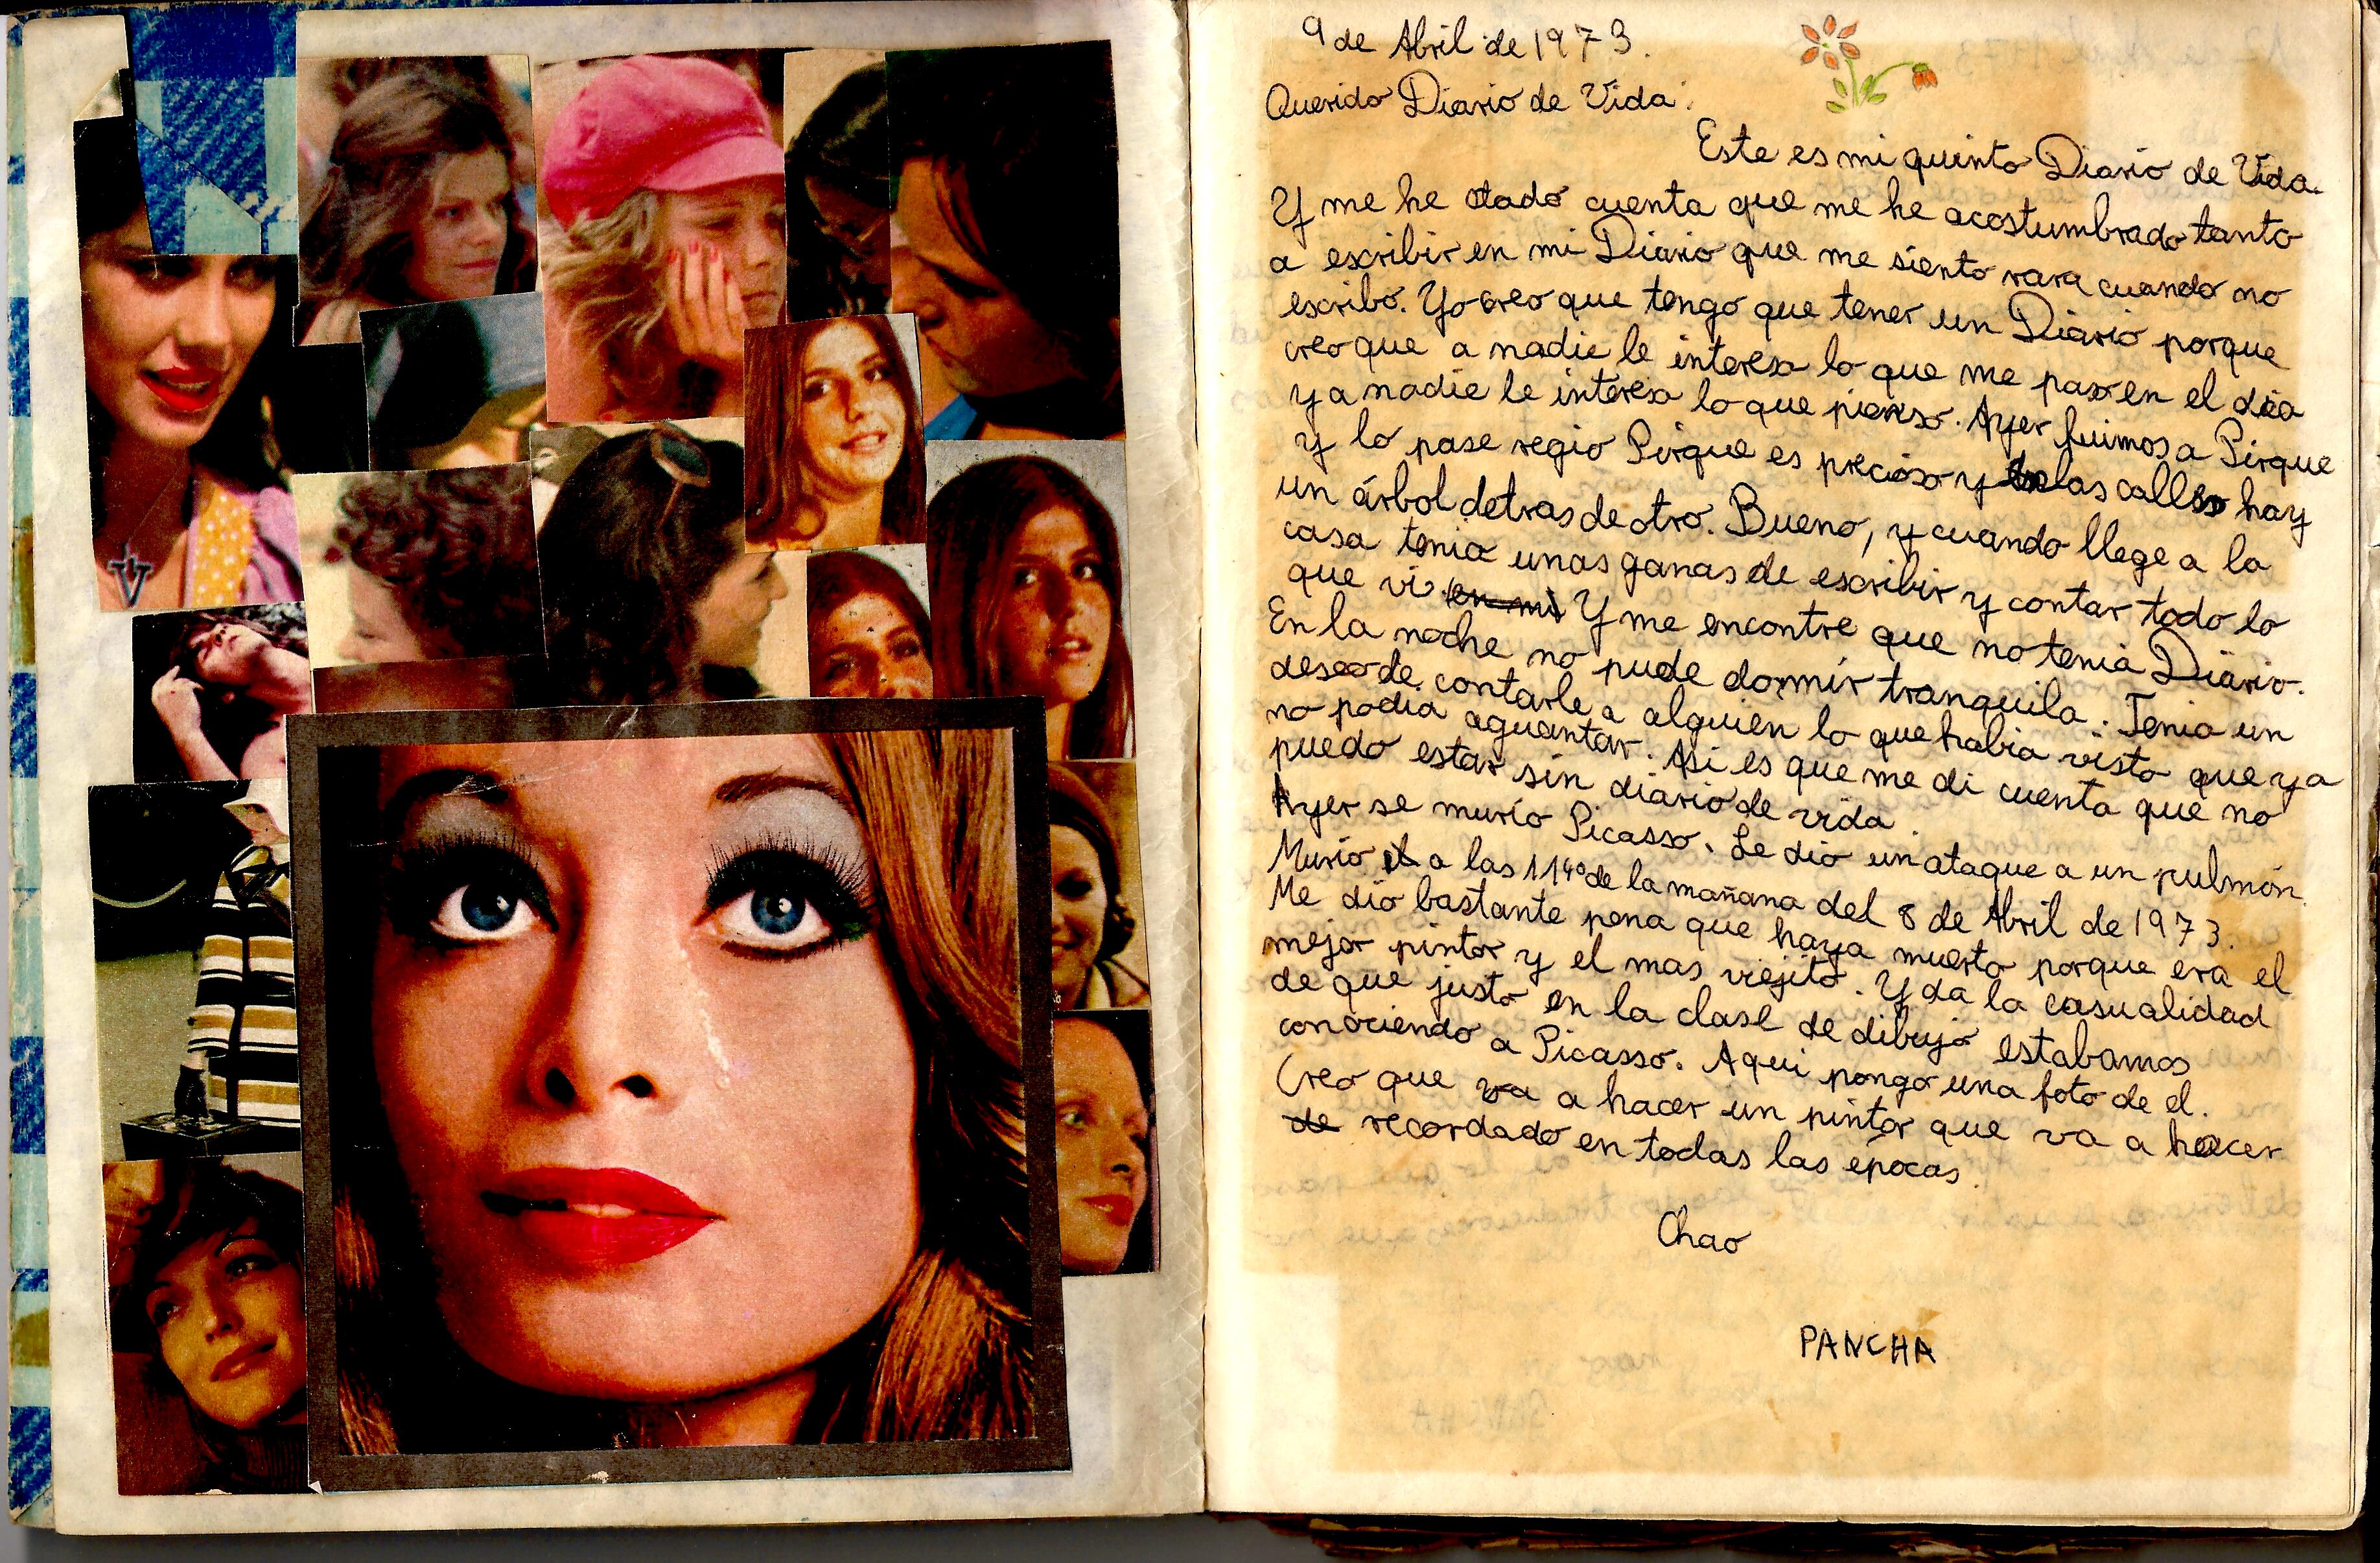 V
9 de Abril de 1973.
Querido Diario de Vida:
Este es mi quinto Diario de Vida.
Y me he dado cuenta que me he acostumbrado tanto
a escribir en mi Diario que me siento rara cuando no
escribo. Yo creo que tengo que tener un Diario porque
creo que a nadie le interesa lo que me pasa en el dia
y a nadie le interesa lo que pienso. Ayer fuimos a Pirque
y lo pase regio Pirque es precioso y en las calles hay
un árbol detras de otro. Bueno, y cuando llege a la
casa tenia unas ganas de escribir y contar todo lo
que vi en mi Y me encontre que no tenia Diario.
En la noche no pude dormir tranquila. Tenia un
deseo de contarle a alguien lo que habia visto que ya
no podia aguantar. Asi es que me di cuenta que no
puedo estar sin diario de vida.
Ayer se murio Picasso. Le dio un ataque a un pulmón.
Murio a las 11 40 de la mañana del 8 de Abril de 1973.
Me dio bastante pena que haya muerto porque era el
mejor pintor y el mas viejito. Y da la casualidad
de que justo en la clase de dibujo estabamos
conociendo a Picasso. Aqui pongo una foto de el.
Creo que va a hacer un pintor que va a hacer
de recordado en todas las epocas.
Chao
PANCHA